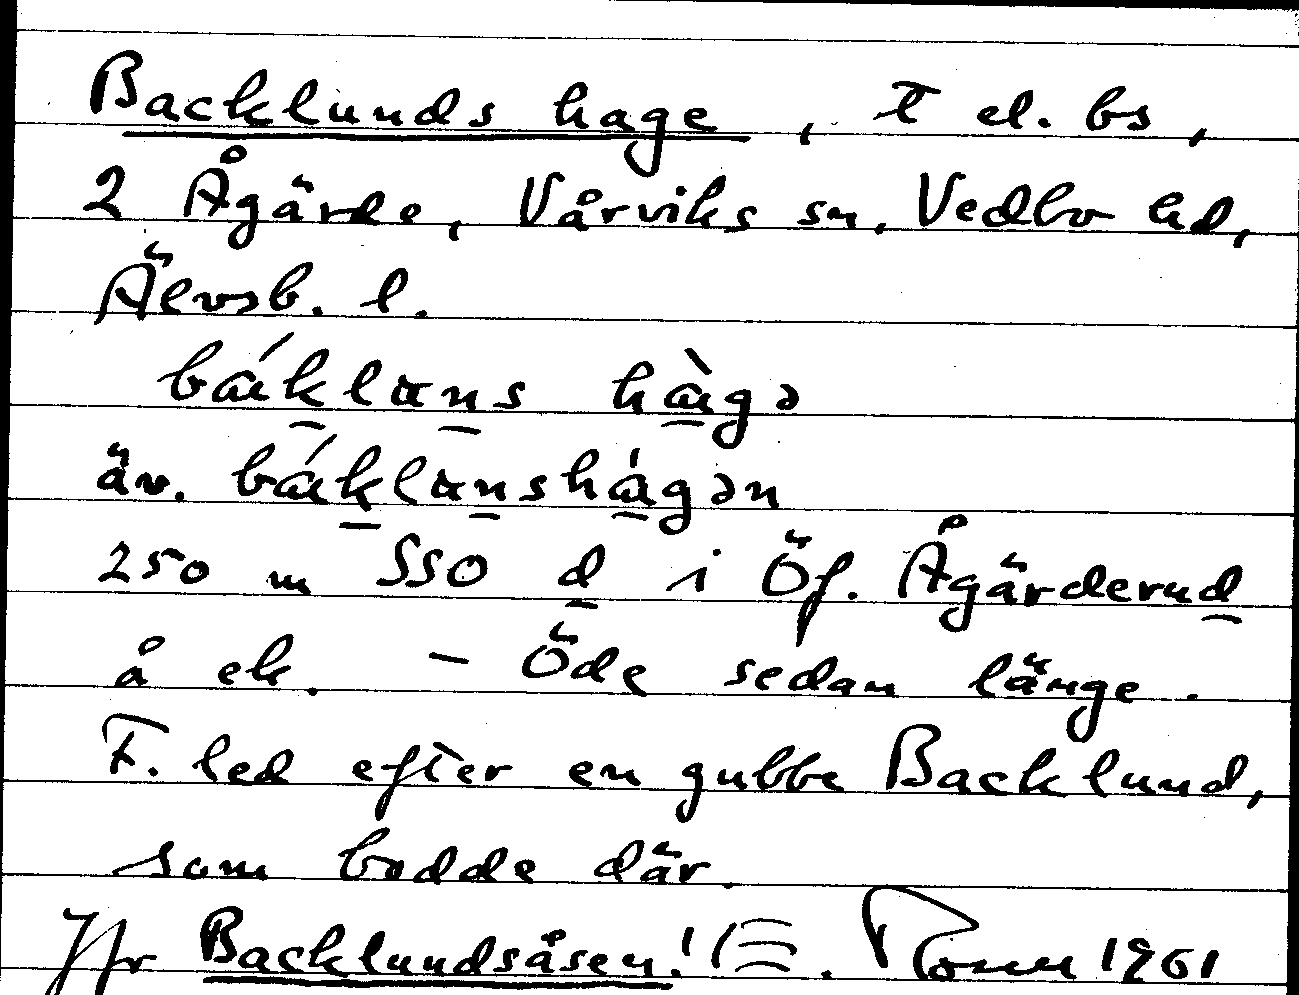 Backlunds hage, t el. bs,
2 Ågärde, Vårviks sn, Vedbo hd,
Älvsb. l.
báklans hàgə
äv. báklanshágən
250 m SSO d i Öf. Ågärderud
å ek. – Öde sedan länge.
F. led efter en gubbe Backlund,
som bodde där.
Jfr Backlundsåsen! 1961